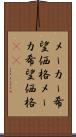 メーカー希
望価格メー
カ希望価格